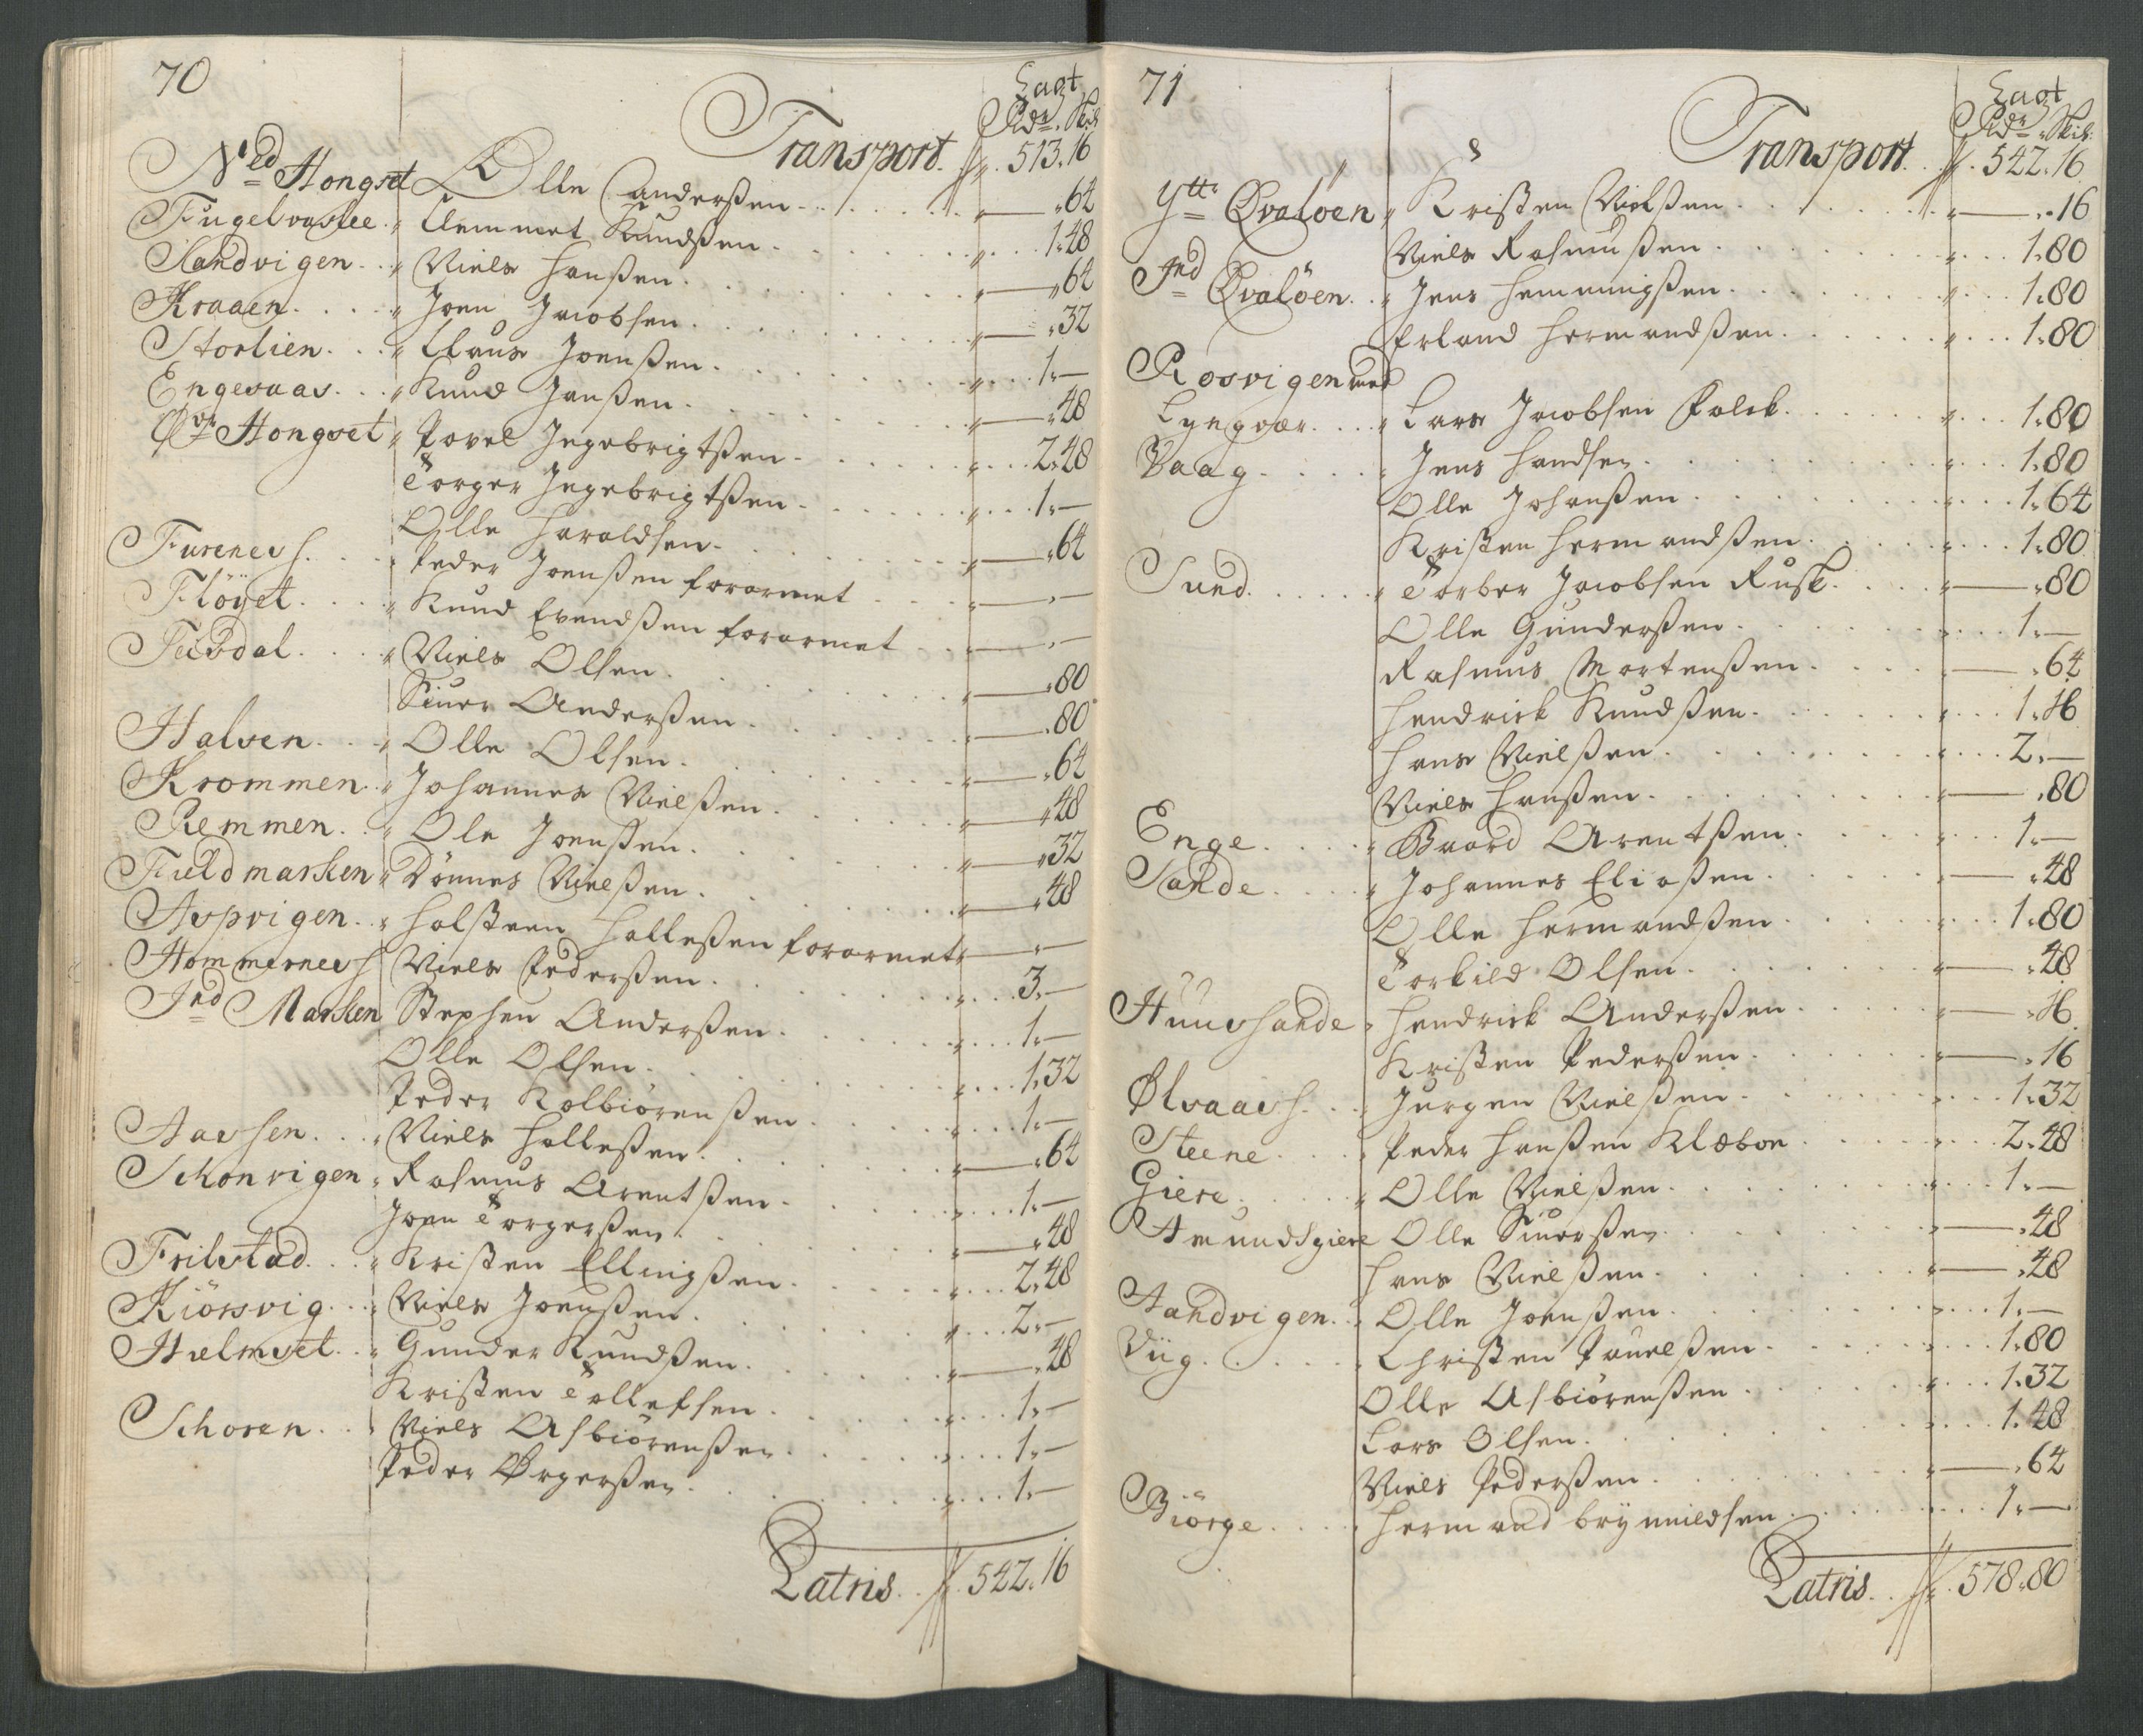 70
Lagt
Rdr. Skil.
Transport. 513.16
Ned Hongset Olle Anderßen 64
Fugelvaslee Clemmet Knudßen 1.48
Sandvigen Niels Hanßen 64
Kraaen Joen Jacobsen 32
Storlien Claus Joenßen 1.–
Engesaas Knud Janßen 48
Øvr Hongset Povel Ingebrigtßen 2.48
Torger Ingebrigtßen 1.–
Olle Haraldsen 64
Furenes Peder Joenßen forarmet –
Flöyet Knud Evendßen forarmet –
Niels Olsen 80
Siuer Anderßen 80
Halsen Olle Olsen 64
Krommen Johannes Nielßen 48
Remmen Ole Joenßen 32
Fieldmarken Dönnes Nielßen 48
Aspvigen Holsteen Halleßen forarmet –
Hommernes Niels Pederßen 3.–
Ind Marken Stephen Anderßen 1.–
Olle Olsen 1.32
Peder Kolbiörenßen 1.–
Aassen Niels Halleßen 64
Schonvigen Rasmus Arentßen 1.–
Joen Torgerßen 48
Frilstad Kristen Ellingßen 2.48
Kiörsvig Niels Joenßen 2.–
Hielmset Gunder Knudßen 48
Kristen Tollefsen 1.–
Schoren Niels Asbiörenßen 1.–
Peder Ørgerßen 1.–
Latris 542.16
71
Lagt
Rdr. Skil.
Transport. 542.16
Yttr Qvalöen Kristen Nielßen 16
Niels Rasmußen 1.80
Ind Qvalöen Jens Hemmingßen 1.80
Erland Hermandßen 1.80
Rosvigen med
Lyngvær Lars Jacobsen Falck 1.80
Vaag Jens Handsen 1.80
Olle Johanßen 1.64
Kristen Hermandßen 1.80
Sund Torber Jacobsen Rusk 80
Olle Gunderßen 1.–
Rasmus Mortenßen 64
Hendrick Knudßen 1.16
Hans Nielßen 2.–
Niels Hanßen 80
Enge Baard Arentßen 1.–
Sande Johannes Eliaßen 48
Olle Hermandßen 1.80
Torkild Olsen 48
Huussande Hendrick Anderßen 16
Kristen Pederßen 16
Ølvaas Jurgen Nielßen 1.32
Steene Peder Hanßen Klæboe 2.48
Giere Olle Nielßen 1.–
Amundsgiere Olle Siuerßen 48
Hans Nielßen 48
Sandvigen Olle Joenßen 1.–
Viig Christen Pauelßen 1.80
Olle Asbiörenßen 1.32
Lars Olsen 1.48
Niels Pederßen 64
Biörge Hermand Brynnildsen 1.–
Latris 578.80